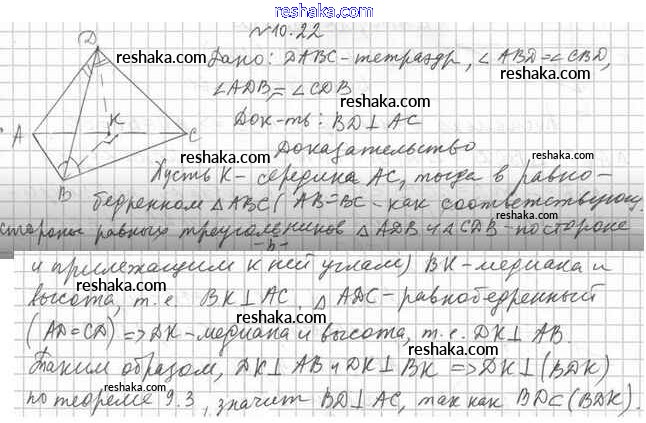 reshaka.com
№10.22
D
reshaka.com
Дано: DABC - тетраэдр, ∠ABD = ∠CBD,
reshaka.com
∠ADB = ∠CDB
reshaka.com
A
K
C
B
Док-ть: BD ⊥ AC
reshaka.com
Доказательство
reshaka.com
Пусть K - середина AC, тогда в равно-
reshaka.com
бедренном △ABC (AB=BC - как соответствующ.
reshaka.com
стороны равных треугольников △ADB и △CDB - по стороне
-"-
reshaka.com
и прилежащим к ней углам) BK - медиана и
reshaka.com
высота, т.е. BK ⊥ AC. △ADC - равнобедренный
reshaka.com
(AD=CD) => DK - медиана и высота, т.е. DK ⊥ AB.
reshaka.com
Таким образом, DK ⊥ AB и DK ⊥ BK => DK ⊥ (BDK)
reshaka.com
по теореме 9.3, значит BD ⊥ AC, так как BD ⊂ (BDK).
reshaka.com